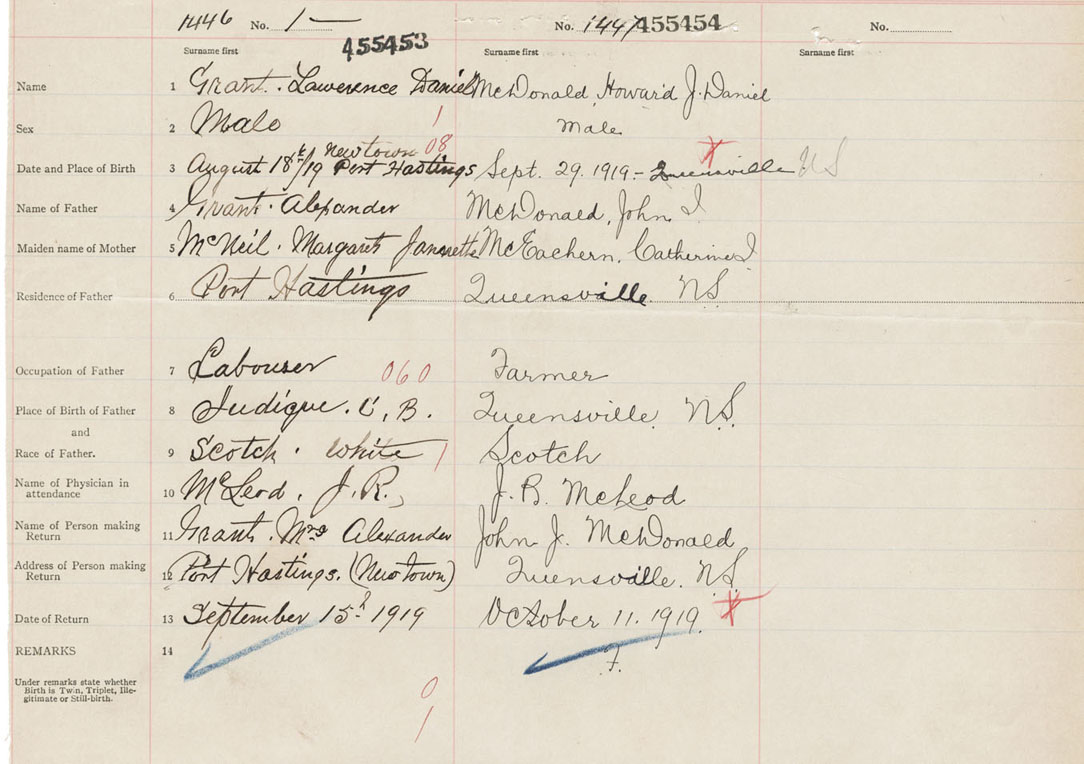 1446 No. 1— No. 1447 455454 No.
455453
Surname first Surname first Surname first
Name 1 Grant. Lawerence Daniel McDonald, Howard J. Daniel
Sex 2 Male 1 Male
Newtown 08
Date and Place of Birth 3 August 18th/19 Port Hastings Sept. 29. 1919 - Queensville NS
Name of Father 4 Grant. Alexander McDonald, John J
Maiden name of Mother 5 McNeil. Margaret Jannette McEachern, Catherine J
Residence of Father 6 Port Hastings Queensville NS
Occupation of Father 7 Labourer 060 Farmer
Place of Birth of Father 8 Judique. C. B. Queensville. NS.
and
Race of Father. 9 Scotch. White 1 Scotch
Name of Physician in
attendance 10 McLeod. J. R., J. B. McLeod
Name of Person making
Return 11 Grant. Mrs Alexander John J. McDonald
Address of Person making
Return 12 Port Hastings. (Newtown) Queensville. NS.
Date of Return 13 September 15th 1919 October 11. 1919.
REMARKS 14 F.
Under remarks state whether
Birth is Twin, Triplet, Ille-
gitimate or Still-birth.
0
1